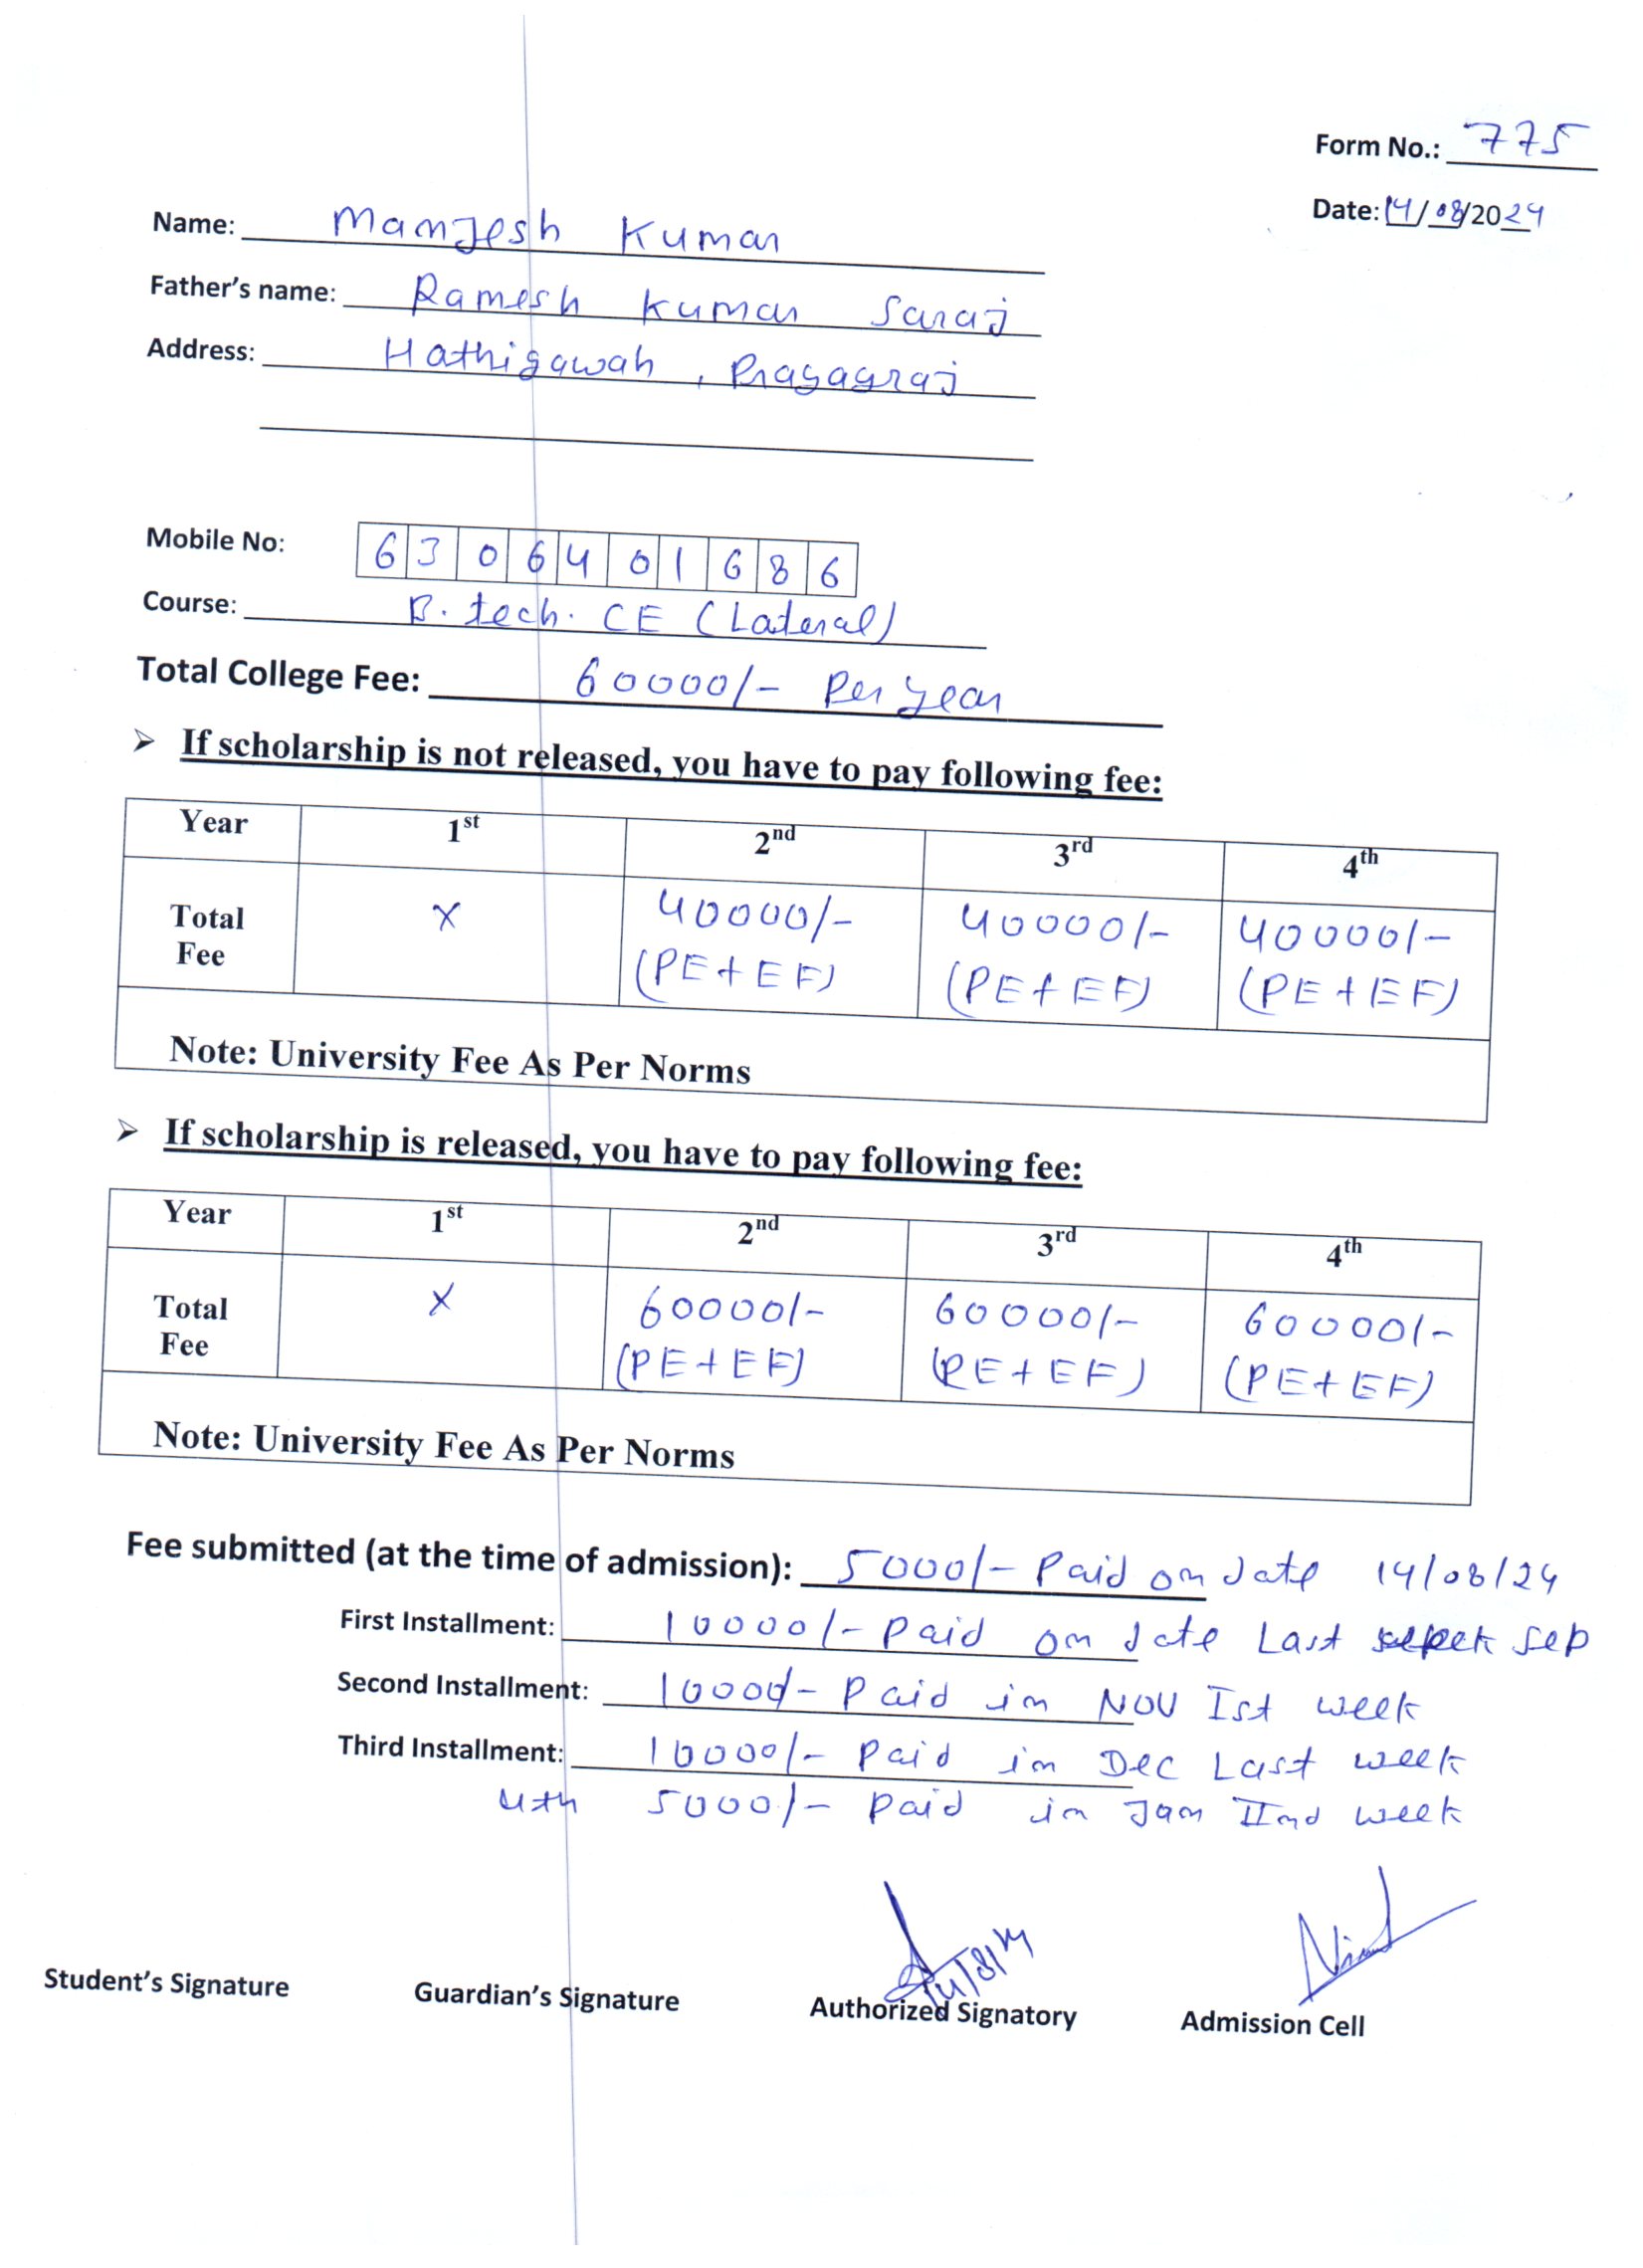 Form No.: 775
Date: 14/08/2024
Name: Manjesh Kumar
Father's name: Ramesh Kumar Saraj
Address: Hathigawah, Prayagraj
Mobile No: 6306401686
Course: B.tech. CE (Lateral)
Total College Fee: 60000/- Per year
➢ If scholarship is not released, you have to pay following fee:
Year 1st 2nd 3rd 4th
Total Fee X 40000/- 40000/- 40000/-
(PE+EF) (PE+EF) (PE+EF)
Note: University Fee As Per Norms
➢ If scholarship is released, you have to pay following fee:
Year 1st 2nd 3rd 4th
Total Fee X 60000/- 60000/- 60000/-
(PE+EF) (PE+EF) (PE+EF)
Note: University Fee As Per Norms
Fee submitted (at the time of admission): 5000/- Paid on date 14/08/24
First Installment: 10000/- Paid on date Last Sep
Second Installment: 10000/- Paid in NOV Ist week
Third Installment: 10000/- Paid in Dec Last week
4th 5000/- Paid in Jan IInd week
Student's Signature Guardian's Signature Authorized Signatory Admission Cell